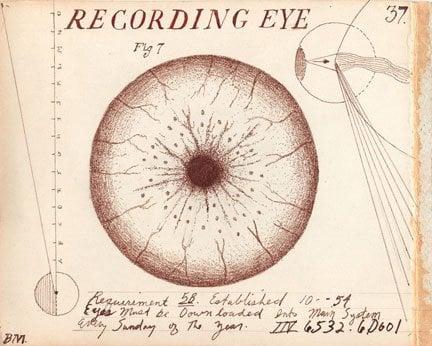 RECORDING EYE
37.
Fig 7
Requirement 5B. Established 10--54
Eyes Must be Downloaded into Main System
Every Sunday of The Year. IIV 6532.6D601
B.M.